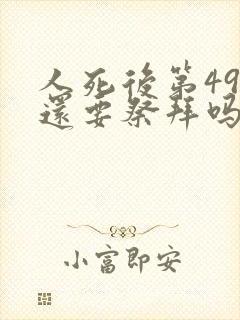 人死後第49
還要祭拜吗
小富即安